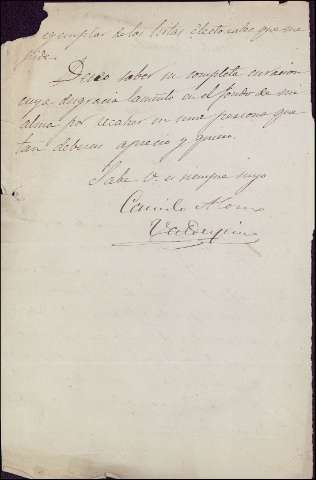 ejemplar de las listas electorales que me
pide.
Deseo saber su completa curacion
cuya desgracia lamento en el fondo de mi
alma por recaher en una persona que
tan deberas aprecio y quiero.
Sabe V. es siempre suyo
Camilo Alonso
Valdespino